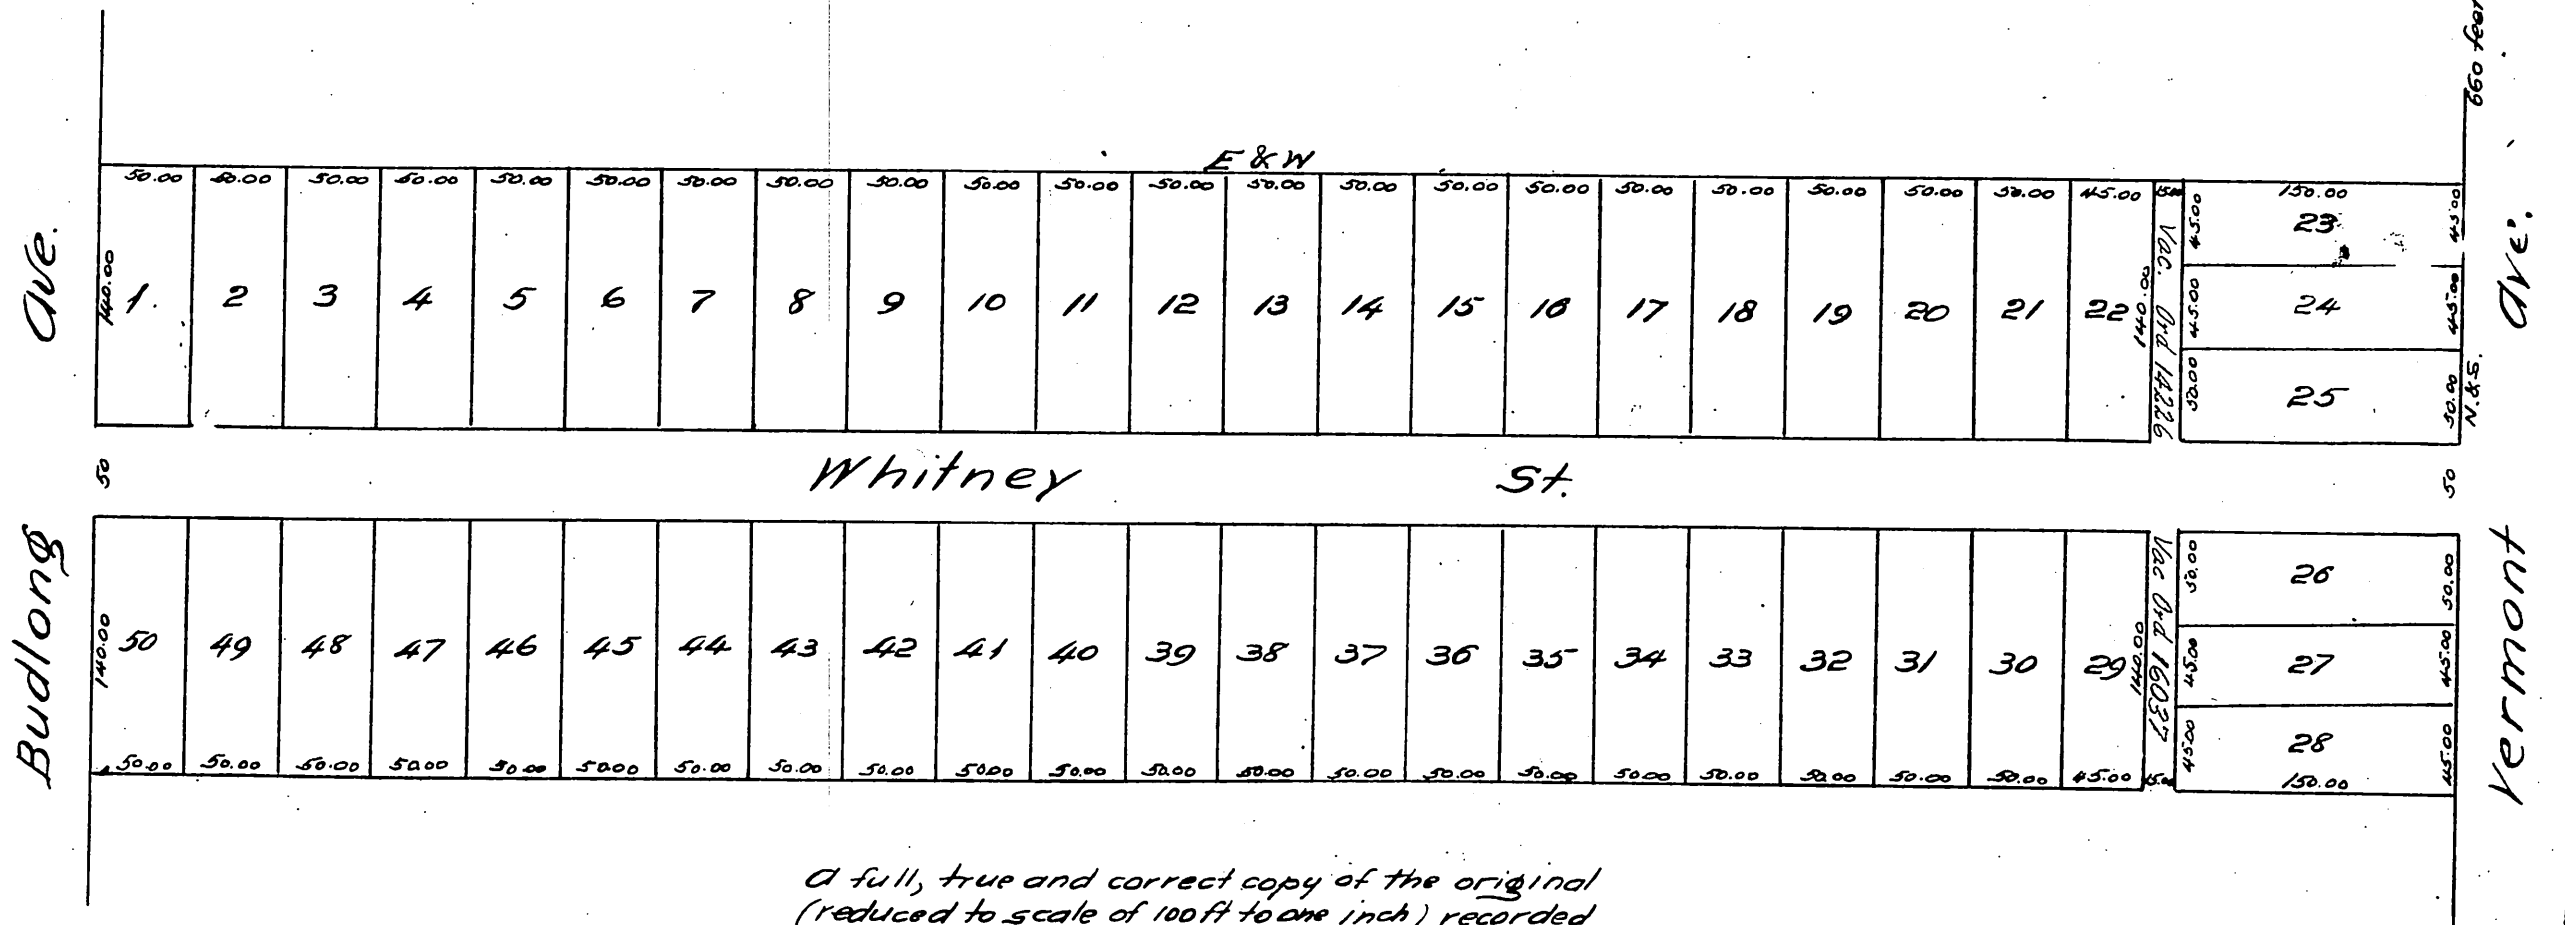 660 feet
E & W
50.00 50.00 50.00 50.00 50.00 50.00 50.00 50.00 50.00 50.00 50.00 50.00 50.00 50.00 50.00 50.00 50.00 50.00 50.00 50.00 50.00 45.00 15.00 150.00
140.00 1. 2 3 4 5 6 7 8 9 10 11 12 13 14 15 16 17 18 19 20 21 22 140.00
Vac. Ord 14226
45.00 23 45.00
45.00 24 45.00
50.00 25 50.00
N. & S.
Ave.
Ave.
50 Whitney St. 50
Budlong
Vermont
140.00 50 49 48 47 46 45 44 43 42 41 40 39 38 37 36 35 34 33 32 31 30 29 140.00
Vac Ord 16037
50.00 26 50.00
45.00 27 45.00
45.00 28 45.00
50.00 50.00 50.00 50.00 50.00 50.00 50.00 50.00 50.00 50.00 50.00 50.00 50.00 50.00 50.00 50.00 50.00 50.00 50.00 50.00 50.00 45.00 15.00 150.00
A full, true and correct copy of the original
(reduced to scale of 100 ft to one inch) recorded